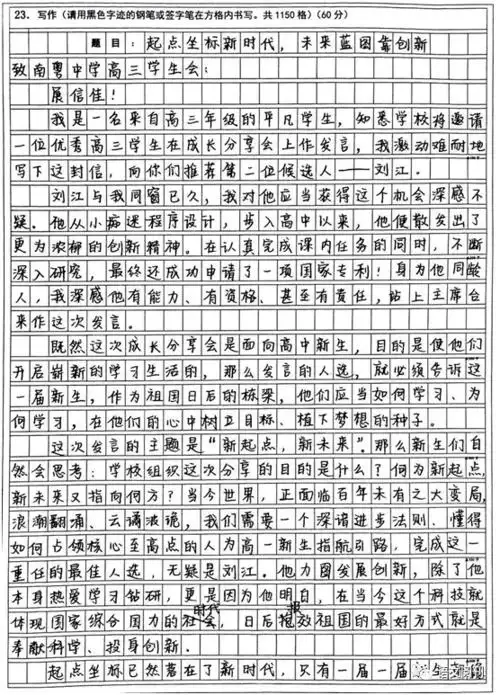 23. 写作（请用黑色字迹的钢笔或签字笔在方格内书写。共1150格）(60分)
题目：起点坐标新时代，未来蓝图靠创新
致南粤中学高三学生会：
展信佳！
我是一名来自高三年级的平凡学生，知悉学校将邀请
一位优秀高三学生在成长分享会上作发言，我激动难耐地
写下这封信，向你们推荐第二位候选人——刘江。
刘江与我同窗已久，我对他应当获得这个机会深感不
疑。他从小痴迷程序设计，步入高中以来，他便散发出了
更为浓郁的创新精神。在认真完成课内任务的同时，不断
深入研究，最终还成功申请了一项国家专利！身为他同龄
人，我深感他有能力、有资格、甚至有责任，站上主席台
来作这次发言。
既然这次成长分享会是面向高中新生，目的是使他们
开启崭新的学习生活的，那么发言的人选，就必须告诉这
一届新生，作为祖国日后的栋梁，他们应当如何学习、为
何学习，在他们的心中树立目标、植下梦想的种子。
这次发言的主题是“新起点，新未来”。那么新生们自
然会思考：学校组织这次分享的目的是什么？何为新起点，
新未来又指向何方？当今世界，正面临百年未有之大变局，
浪潮翻涌、云谲波诡，我们需要一个深谙进步法则、懂得
如何占领核心至高点的人为高一新生指航引路，完成这一
重任的最佳人选，无疑是刘江。他力图发展创新，除了他
本身热爱学习钻研，更是因为他明白，在当今这个科技就
体现国家综合国力的时代，日后报效祖国的最好方式就是
奉献科学、投身创新。
起点坐标已然落在了新时代，只有一届一届
语文周刊